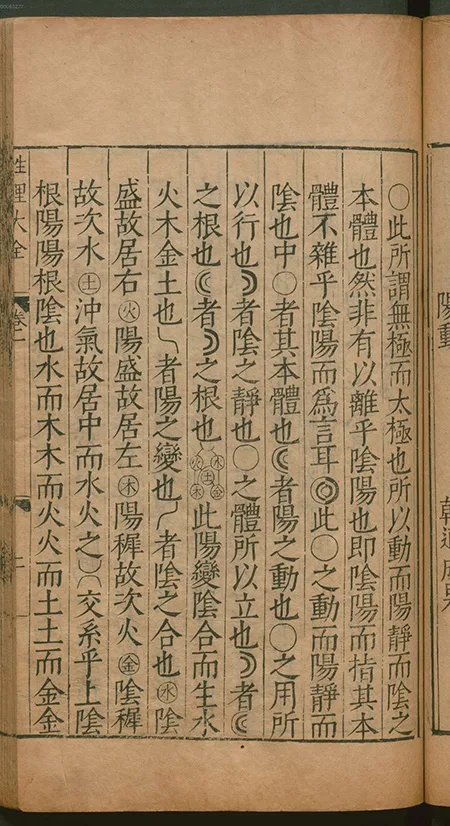 陽動
〇此所謂無極而太極也所以動而陽靜而陰之
本體也然非有以離乎陰陽也即陰陽而指其本
體不雜乎陰陽而爲言耳◎此〇之動而陽靜而
陰也中〇者其本體也☾者陽之動也〇之用所
以行也☽者陰之靜也〇之體所以立也☽者☾
之根也☾者☽之根也㊌㊋㊏㊍㊎此陽變陰合而生水
火木金土也㇏者陽之變也㇀者陰之合也㊌陰
盛故居右㊋陽盛故居左㊍陽穉故次火㊎陰穉
故次水㊏沖氣故居中而水火之)(交系乎上陰
根陽陽根陰也水而木木而火火而土土而金金
性理大全 卷一